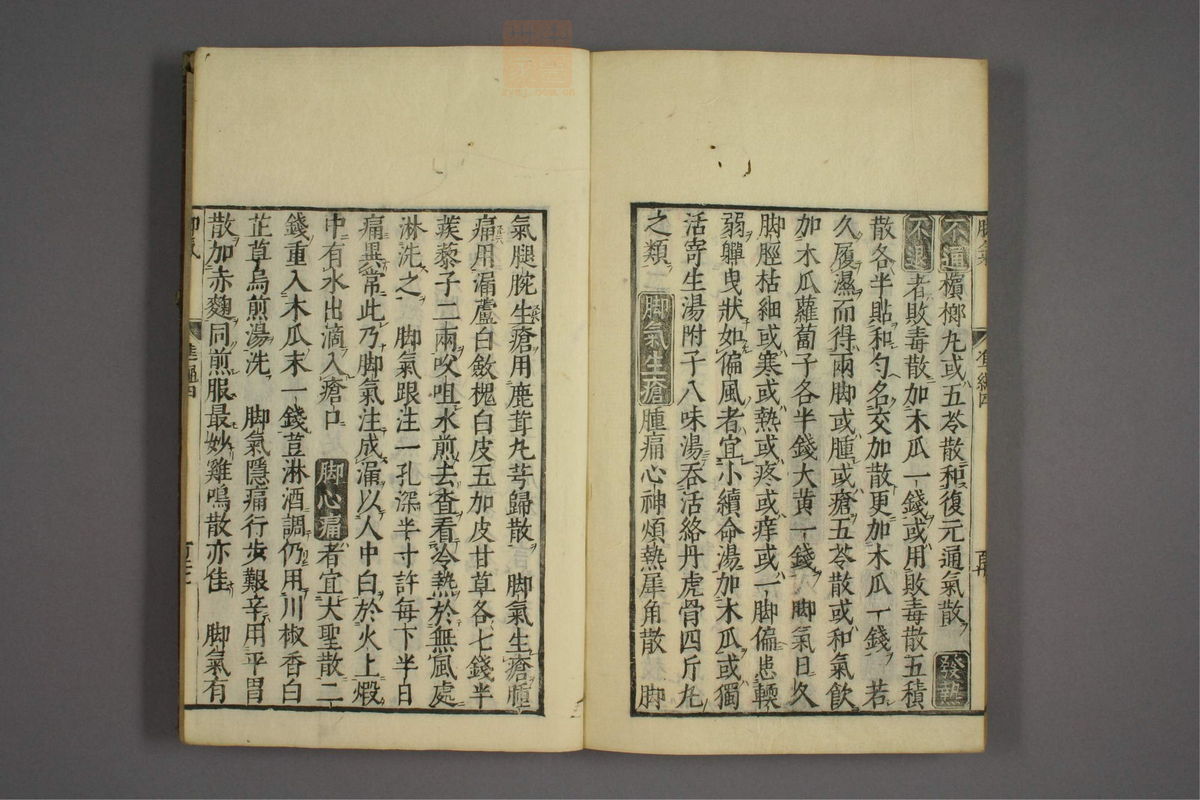 不通檳榔丸或五苓散和復元通氣散 發熱
不退者敗毒散加木瓜一錢或用敗毒散五積
散各半貼和勻名交加散更加木瓜一錢 若
久履濕而得兩脚或腫或瘡五苓散或和氣飲
加木瓜蘿蔔子各半錢大黃一錢 脚氣日久
脚脛枯細或寒或熱或疼或痒或一脚偏患軟
弱軃曳狀如偏風者宜小續命湯加木瓜或獨
活寄生湯附子八味湯吞活絡丹虎骨四斤丸
之類 脚氣生瘡腫痛心神煩熱犀角散 脚
氣腿腕生瘡用鹿茸丸芎歸散 脚氣生瘡腫
痛用漏蘆白斂槐白皮五加皮甘草各七錢半
蒺藜子二兩㕮咀水煎去查看冷熱於無風處
淋洗之 脚氣跟注一孔深半寸許每下半日
痛異常此乃脚氣注成漏以人中白於火上煅
中有水出滴入瘡口 脚心痛者宜大聖散二
錢重入木瓜末一錢荳淋酒調仍用川椒香白
芷草烏煎湯洗 脚氣隱痛行步艱辛用平胃
散加赤麯同煎服最妙雞鳴散亦佳 脚氣有